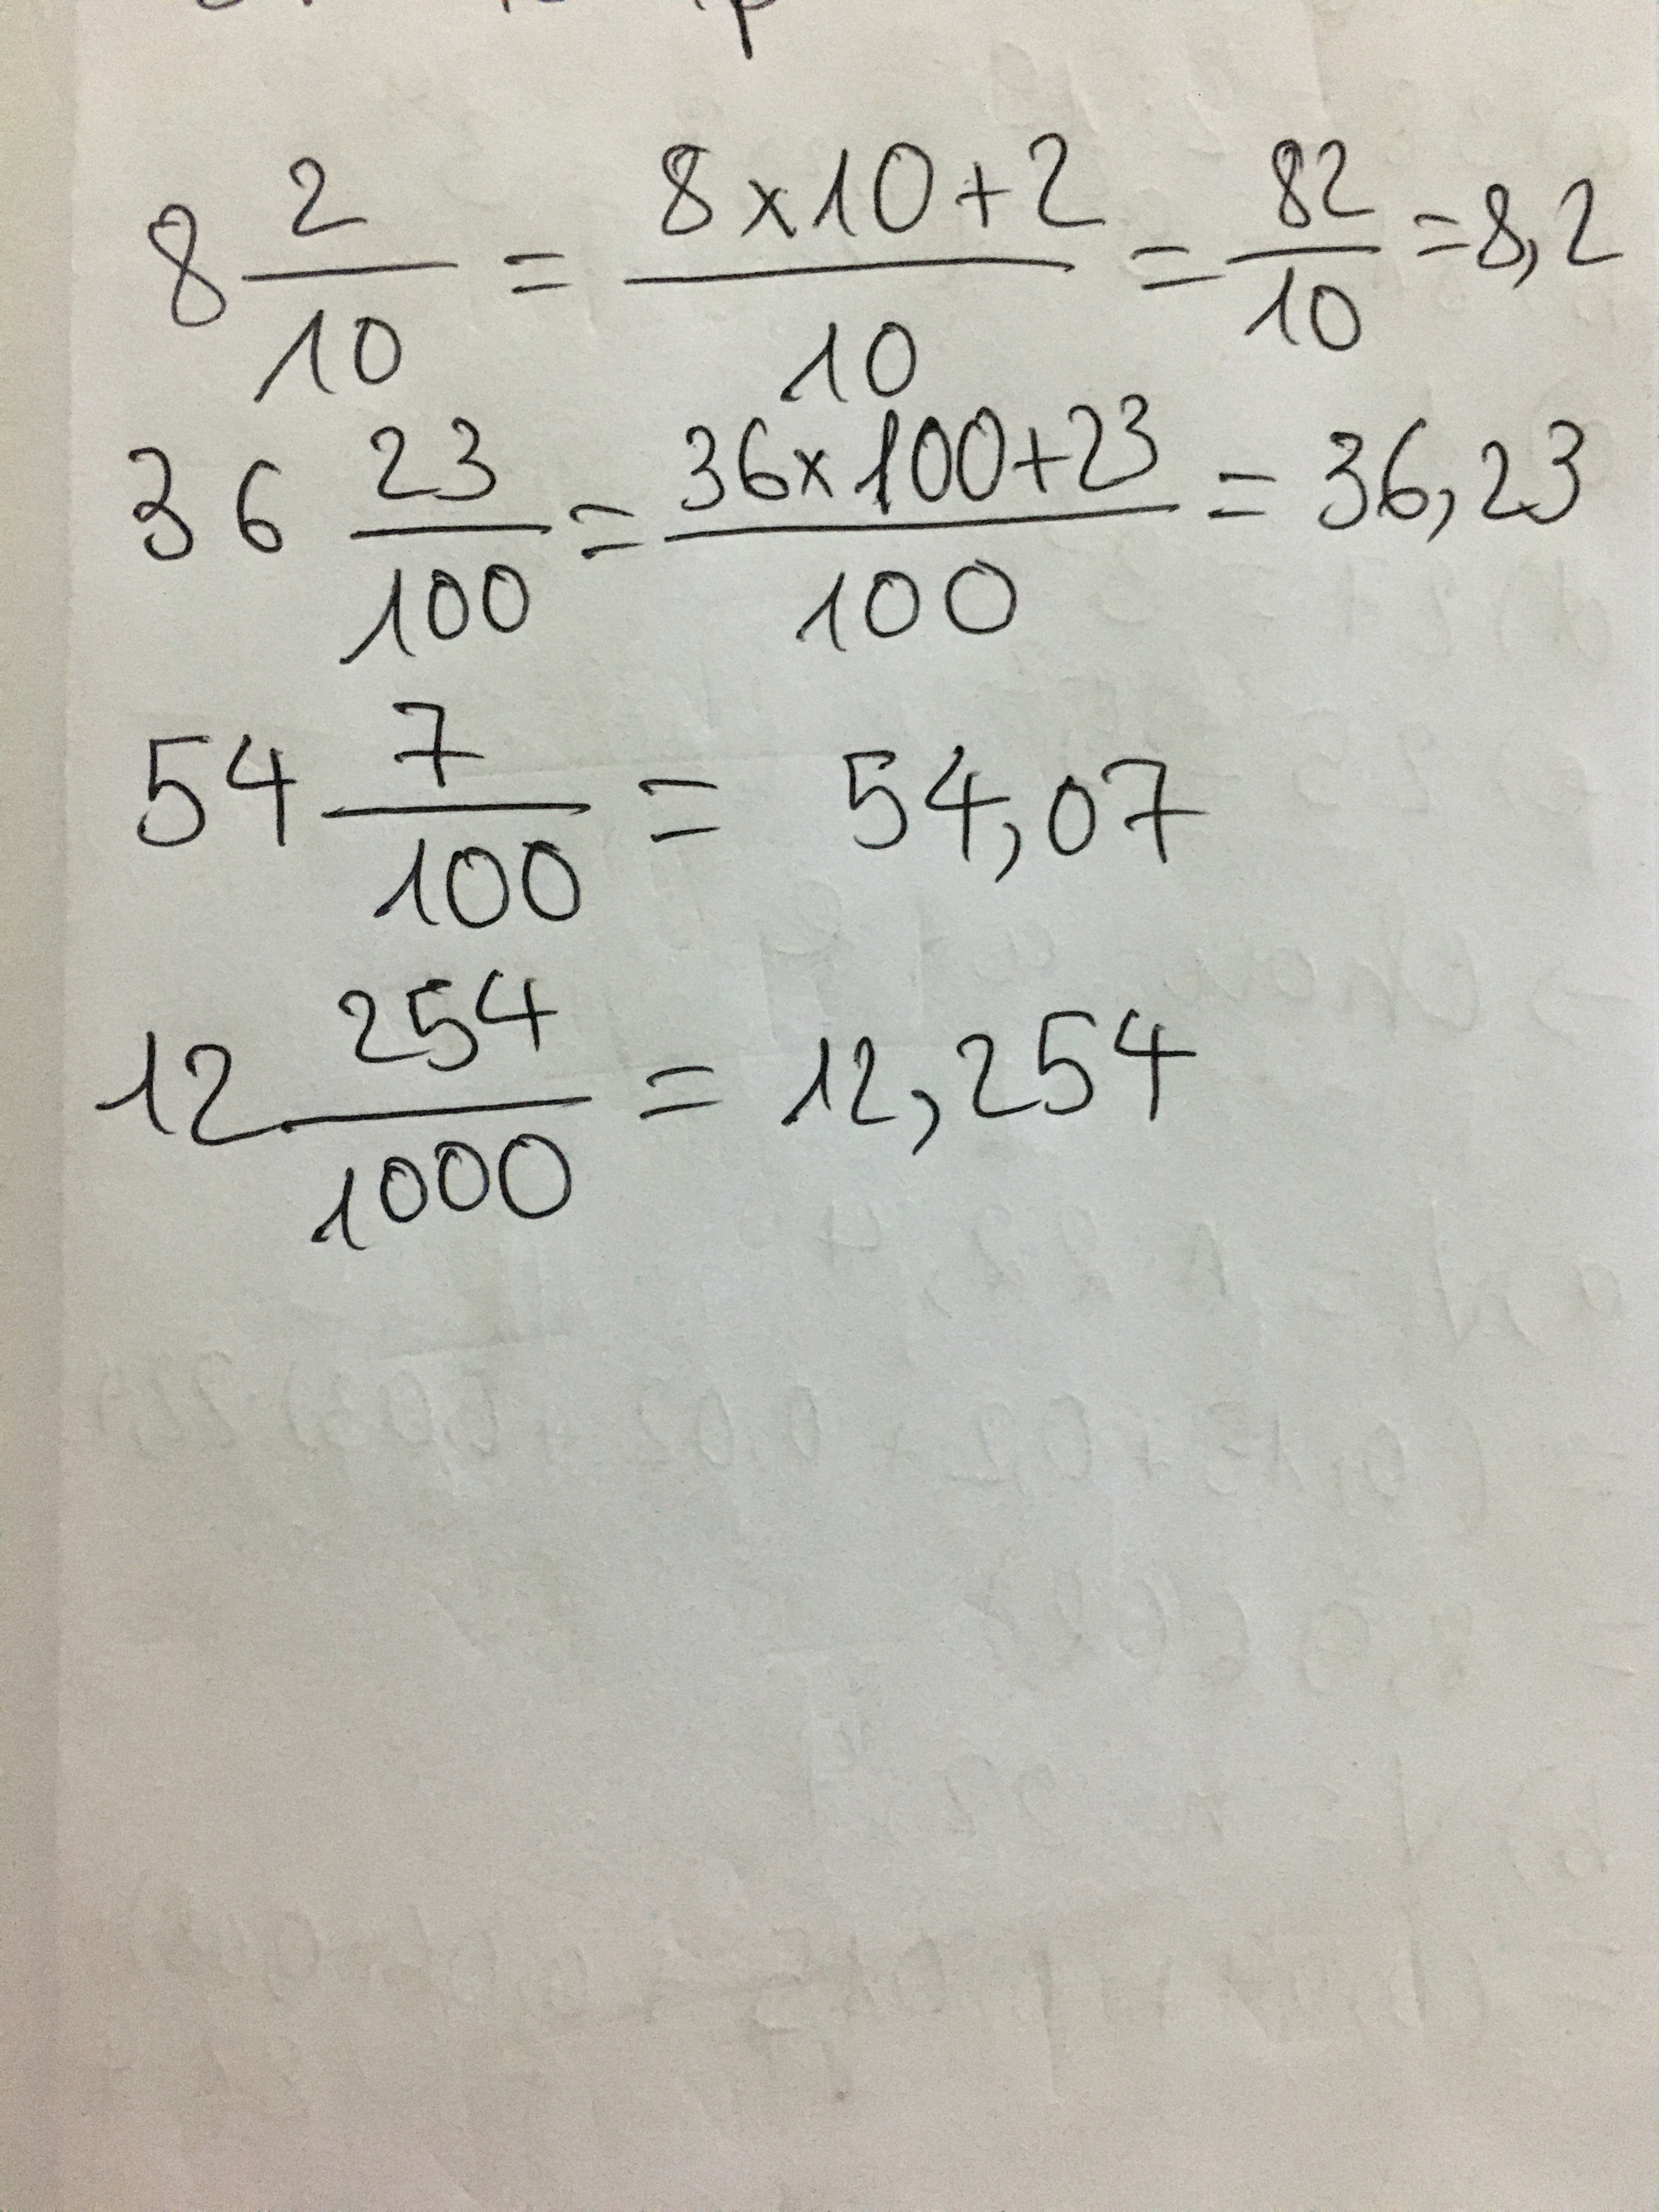 8 2/10 = (8 x 10 + 2)/10 = 82/10 = 8,2
36 23/100 = (36 x 100 + 23)/100 = 36,23
54 7/100 = 54,07
12 254/1000 = 12,254